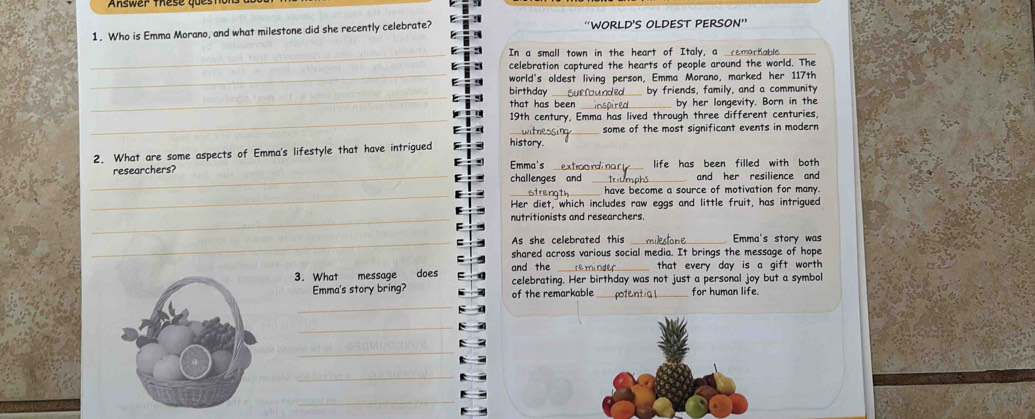 Answer these questions about
1. Who is Emma Morano, and what milestone did she recently celebrate?
2. What are some aspects of Emma's lifestyle that have intrigued
researchers?
3. What message does
Emma's story bring?
"WORLD'S OLDEST PERSON"
In a small town in the heart of Italy, a remarkable
celebration captured the hearts of people around the world. The
world's oldest living person, Emma Morano, marked her 117th
birthday surrounded by friends, family, and a community
that has been inspired by her longevity. Born in the
19th century, Emma has lived through three different centuries,
witnessing some of the most significant events in modern
history.
Emma's extraordinary life has been filled with both
challenges and triumphs and her resilience and
strength have become a source of motivation for many.
Her diet, which includes raw eggs and little fruit, has intrigued
nutritionists and researchers.
As she celebrated this milestone Emma's story was
shared across various social media. It brings the message of hope
and the reminder that every day is a gift worth
celebrating. Her birthday was not just a personal joy but a symbol
of the remarkable potential for human life.